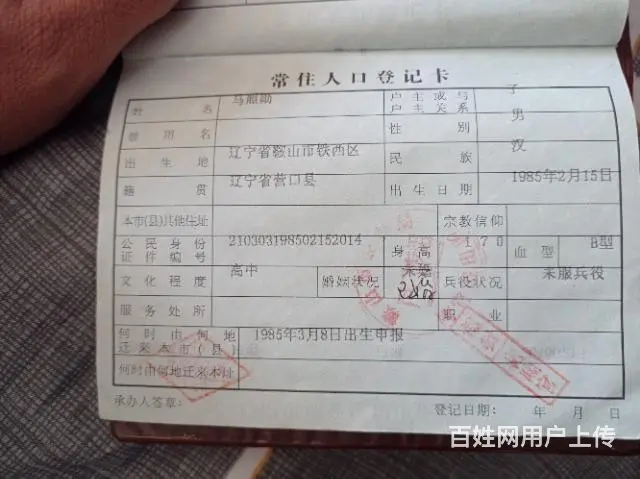 常住人口登记卡
姓名 马照勋 户主或与户主关系 子
曾用名 性别 男
出生地 辽宁省鞍山市铁西区 民族 汉
籍贯 辽宁省营口县 出生日期 1985年2月15日
本市(县)其他住址 宗教信仰
公民身份证件编号 210303198502152014 身高 170 血型 B型
文化程度 高中 婚姻状况 未婚 兵役状况 未服兵役
服务处所 职业
何时由何地迁来本市(县) 1985年3月8日出生申报
何时由何地迁来本址
承办人签章: 登记日期: 年 月 日
百姓网用户上传